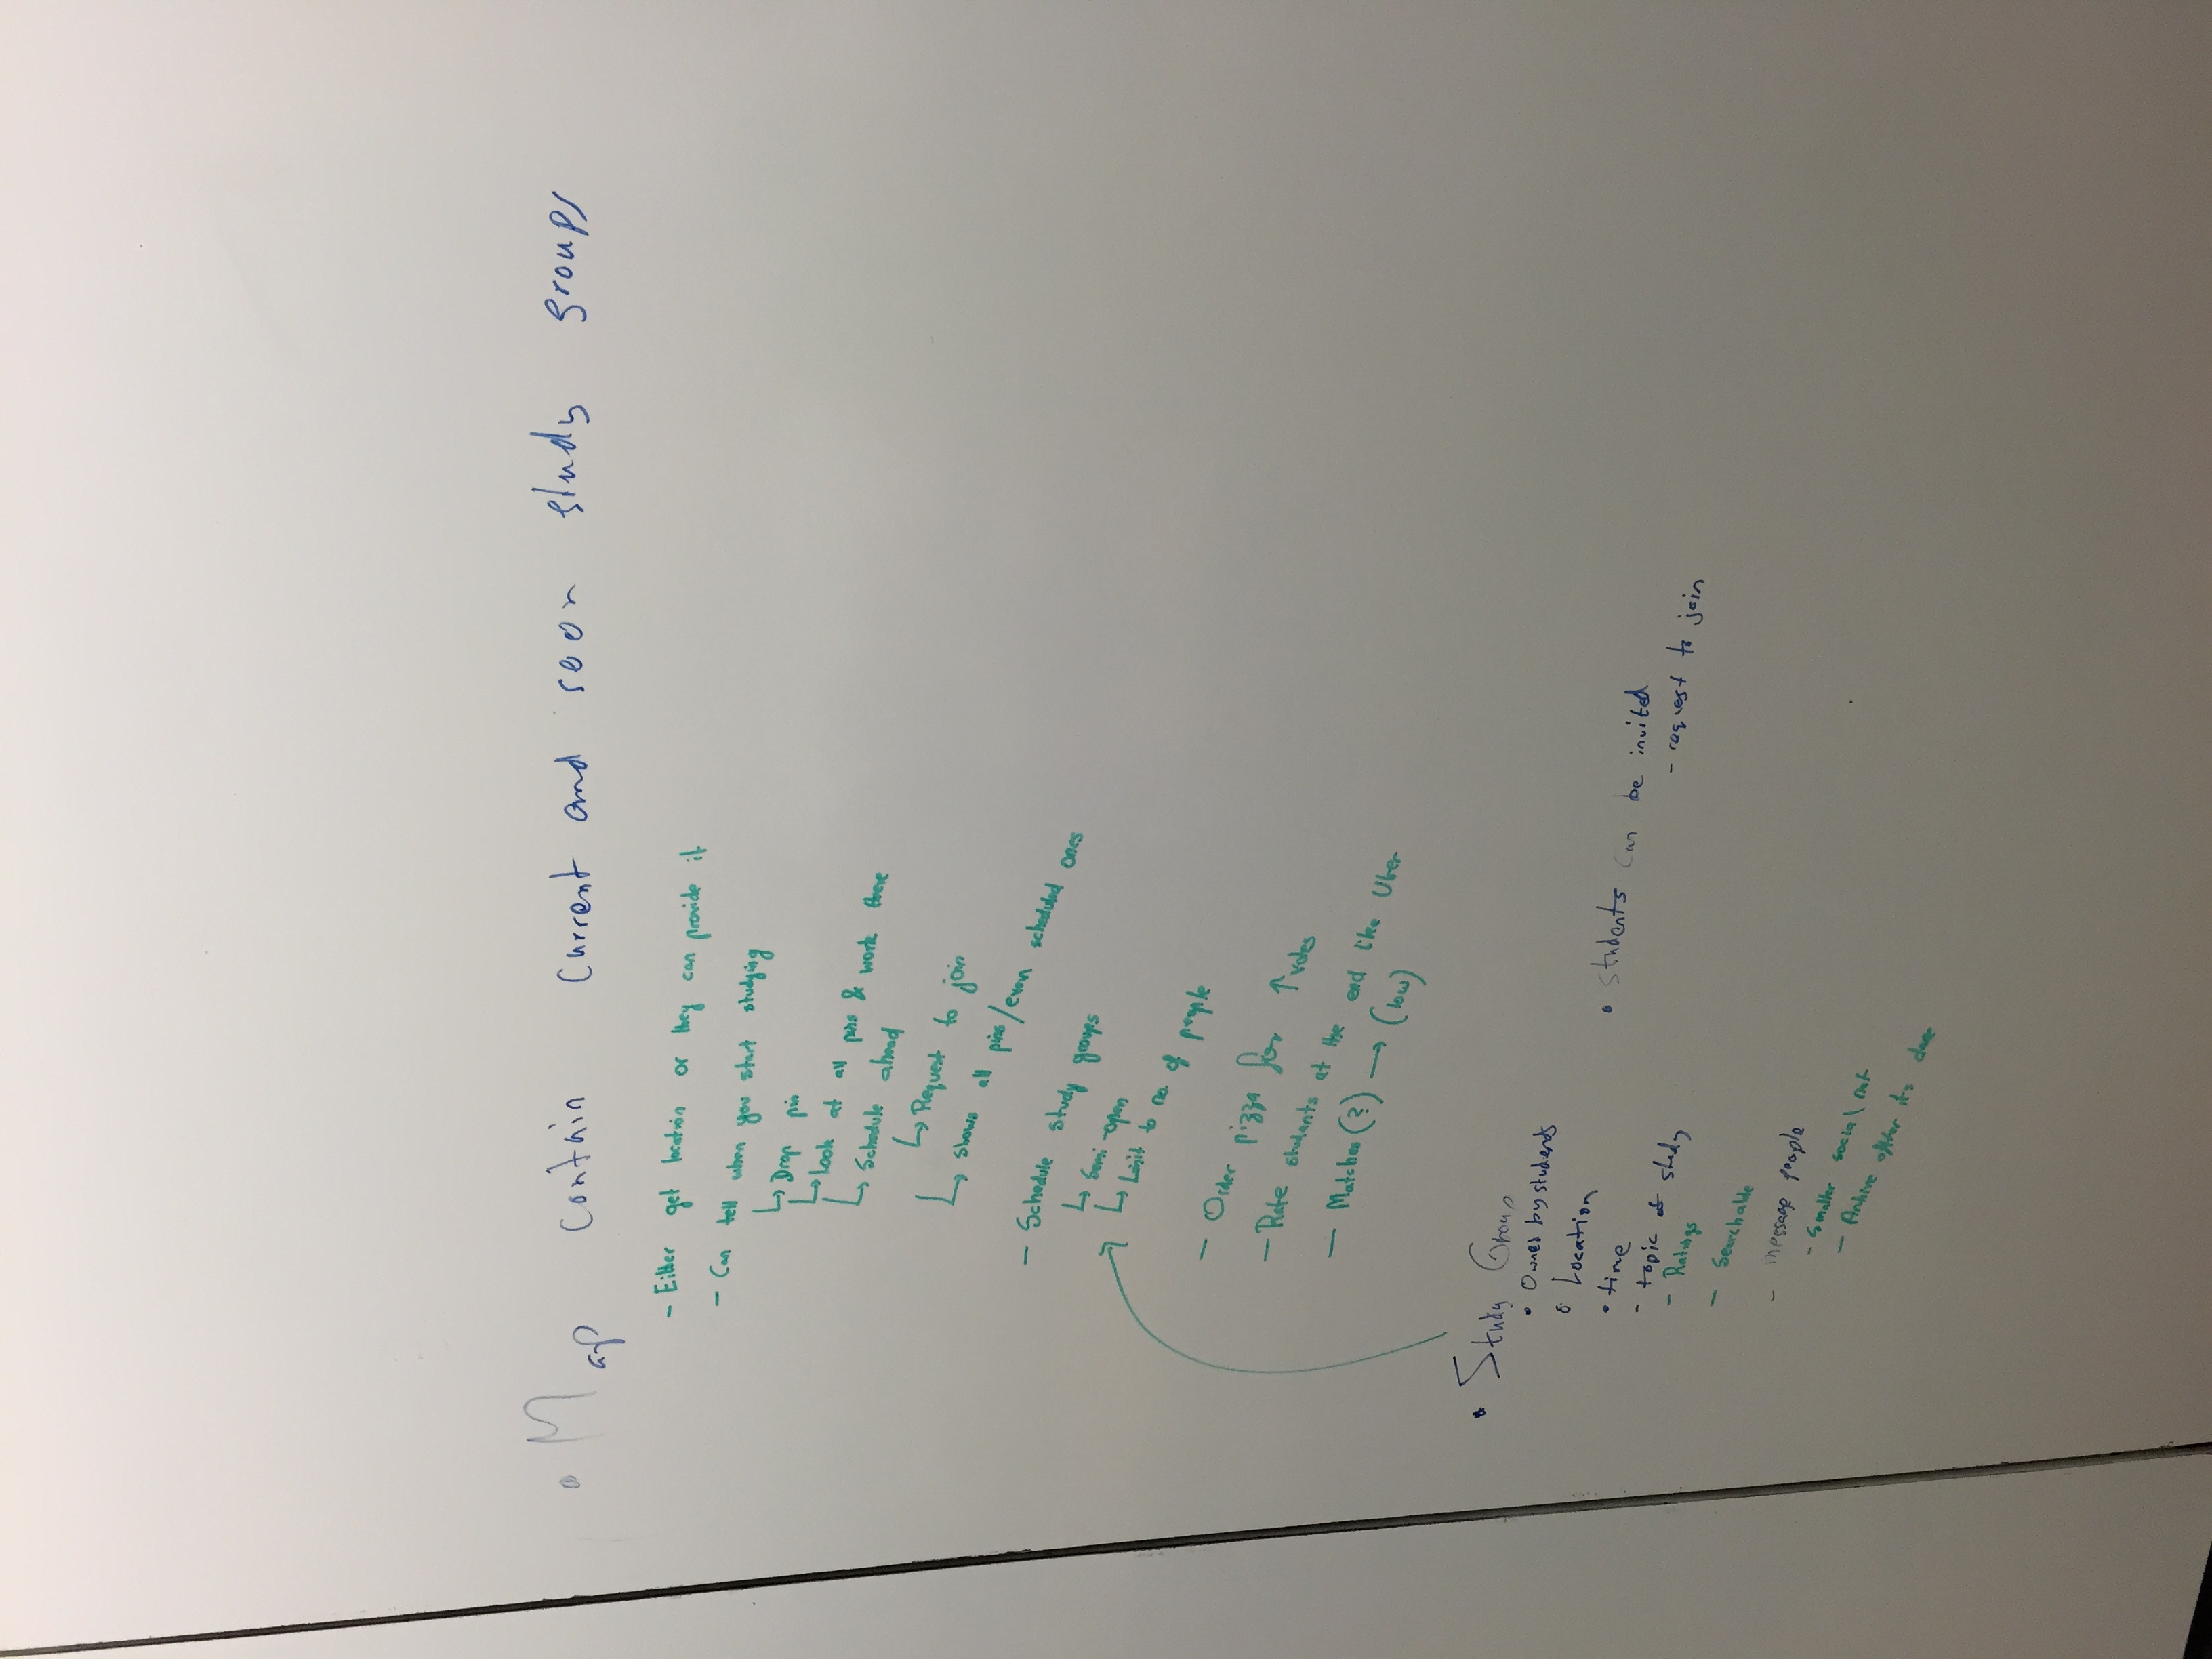 • Map contain current and soon study groups
- Either get location or they can provide it
- Can tell when you start studying
↳ Drop pin
↳ Look at all pins & work there
↳ Schedule ahead
↳ Request to join
↳ Shows all pins/even scheduled ones
- Schedule study groups
↳ Semi-open
↳ Limit to no. of people
- Order pizza for ↑votes
- Rate students at the end like Uber
- Matches (?) → (low)
• Study Group
• Owned by students
• Location
• time
- topic of study
- Ratings
- Searchable
- message people
- Smaller social net
- Archive after its done
• students can be invited
- request to join